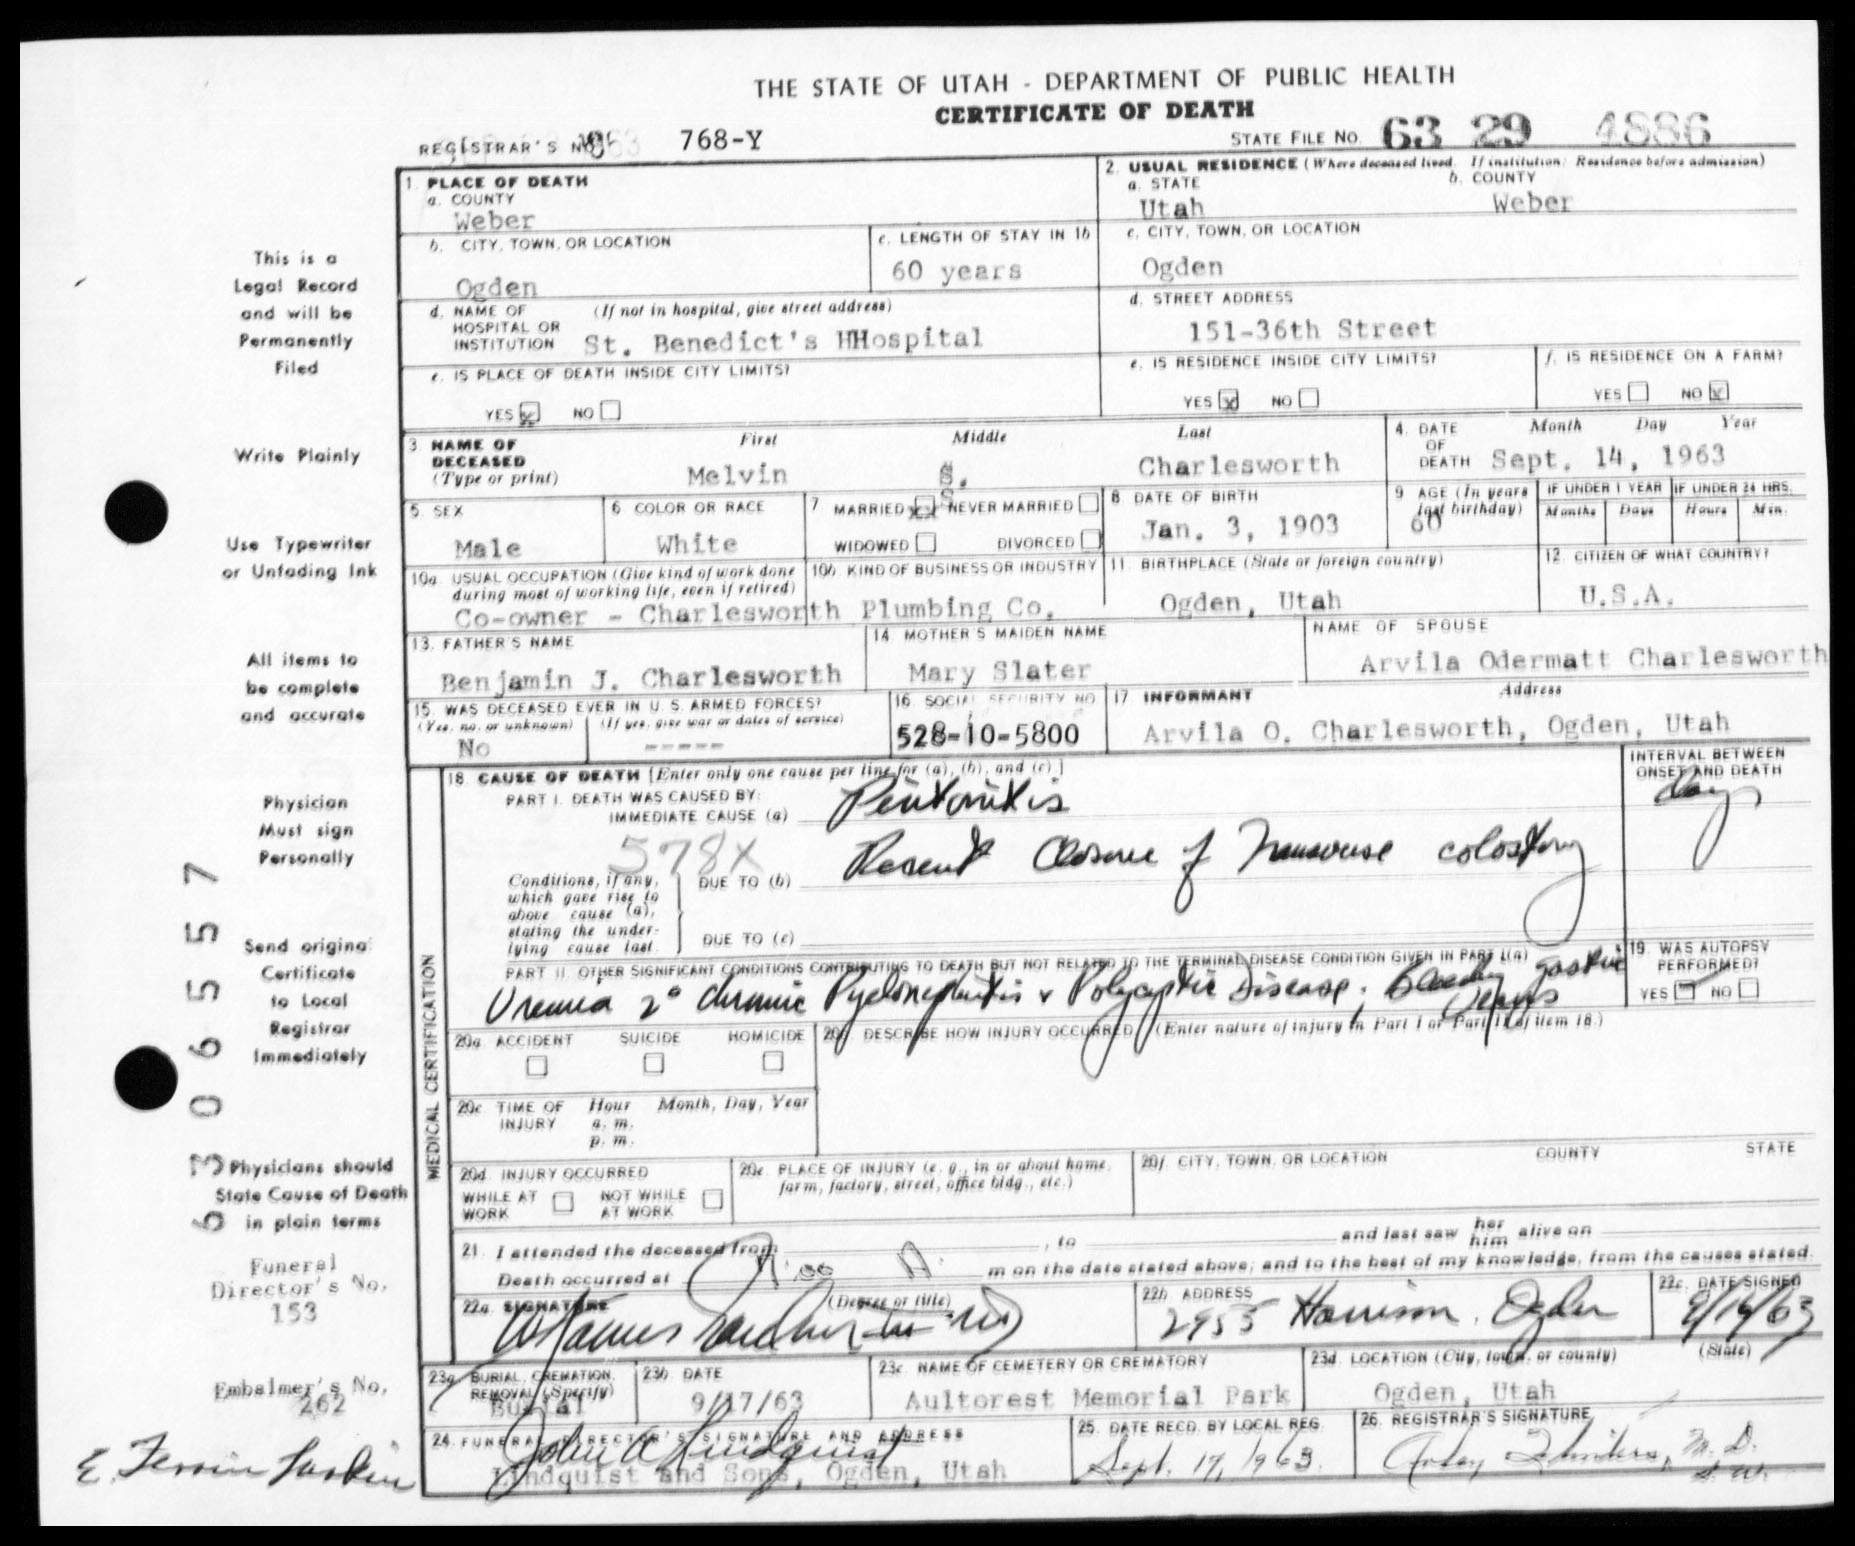 THE STATE OF UTAH - DEPARTMENT OF PUBLIC HEALTH
CERTIFICATE OF DEATH
REGISTRAR'S NO. 768-Y
STATE FILE NO. 63 29 4886
1. PLACE OF DEATH
a. COUNTY
Weber
2. USUAL RESIDENCE (Where deceased lived. If institution: Residence before admission)
a. STATE b. COUNTY
Utah Weber
b. CITY, TOWN, OR LOCATION
Ogden
c. LENGTH OF STAY IN 1b
60 years
c. CITY, TOWN, OR LOCATION
Ogden
d. NAME OF HOSPITAL OR INSTITUTION (If not in hospital, give street address)
St. Benedict's HHospital
d. STREET ADDRESS
151-36th Street
e. IS PLACE OF DEATH INSIDE CITY LIMITS?
YES x NO
e. IS RESIDENCE INSIDE CITY LIMITS?
YES x NO
f. IS RESIDENCE ON A FARM?
YES NO x
3. NAME OF DECEASED (Type or print)
First Middle Last
Melvin S. Charlesworth
4. DATE OF DEATH Month Day Year
Sept. 14, 1963
5. SEX
Male
6. COLOR OR RACE
White
7. MARRIED xx NEVER MARRIED
WIDOWED DIVORCED
8. DATE OF BIRTH
Jan. 3, 1903
9. AGE (In years last birthday)
60
IF UNDER 1 YEAR IF UNDER 24 HRS.
Months Days Hours Min.
10a. USUAL OCCUPATION (Give kind of work done during most of working life, even if retired)
10b. KIND OF BUSINESS OR INDUSTRY
Co-owner - Charlesworth Plumbing Co.
11. BIRTHPLACE (State or foreign country)
Ogden, Utah
12. CITIZEN OF WHAT COUNTRY?
U.S.A.
13. FATHER'S NAME
Benjamin J. Charlesworth
14. MOTHER'S MAIDEN NAME
Mary Slater
NAME OF SPOUSE
Arvila Odermatt Charlesworth
15. WAS DECEASED EVER IN U.S. ARMED FORCES?
(Yes, no, or unknown) (If yes, give war or dates of service)
No -----
16. SOCIAL SECURITY NO
528-10-5800
17. INFORMANT Address
Arvila O. Charlesworth, Ogden, Utah
MEDICAL CERTIFICATION
18. CAUSE OF DEATH [Enter only one cause per line for (a), (b), and (c).]
INTERVAL BETWEEN ONSET AND DEATH
PART I. DEATH WAS CAUSED BY:
IMMEDIATE CAUSE (a) Peritonitis
Days
578X
Conditions, if any, which gave rise to above cause (a), stating the underlying cause last.
DUE TO (b) Recent Closure of Transverse colostomy
DUE TO (c)
PART II. OTHER SIGNIFICANT CONDITIONS CONTRIBUTING TO DEATH BUT NOT RELATED TO THE TERMINAL DISEASE CONDITION GIVEN IN PART I(a)
Uremia 2° chronic Pyelonephritis & Polycystic Disease, Bleeding Gastric Ulcers
19. WAS AUTOPSY PERFORMED?
YES NO
20a. ACCIDENT SUICIDE HOMICIDE
20b. DESCRIBE HOW INJURY OCCURRED (Enter nature of injury in Part I or Part II of item 18.)
20c. TIME OF INJURY Hour Month, Day, Year
a. m.
p. m.
20d. INJURY OCCURRED
WHILE AT WORK NOT WHILE AT WORK
20e. PLACE OF INJURY (e. g., in or about home, farm, factory, street, office bldg., etc.)
20f. CITY, TOWN, OR LOCATION COUNTY STATE
21. I attended the deceased from , to and last saw her him alive on
Death occurred at :00 A. m on the date stated above; and to the best of my knowledge, from the causes stated.
22a. SIGNATURE (Degree or title)
22b. ADDRESS
2955 Harrison. Ogden
22c. DATE SIGNED
9/16/63
23a. BURIAL, CREMATION, REMOVAL (Specify)
Burial
23b. DATE
9/17/63
23c. NAME OF CEMETERY OR CREMATORY
Aultorest Memorial Park
23d. LOCATION (City, town, or county) (State)
Ogden, Utah
24. FUNERAL DIRECTOR'S SIGNATURE AND ADDRESS
John A Lindquist
Lindquist and Sons, Ogden, Utah
25. DATE RECD. BY LOCAL REG.
Sept. 17, 1963
26. REGISTRAR'S SIGNATURE
M. D.
This is a
Legal Record
and will be
Permanently
Filed
Write Plainly
Use Typewriter
or Unfading Ink
All items to
be complete
and accurate
Physician
Must sign
Personally
Send original
Certificate
to Local
Registrar
Immediately
Physicians should
State Cause of Death
in plain terms
63 065557
Funeral
Director's No.
153
Embalmer's No.
262
E. Ferrin Larkin